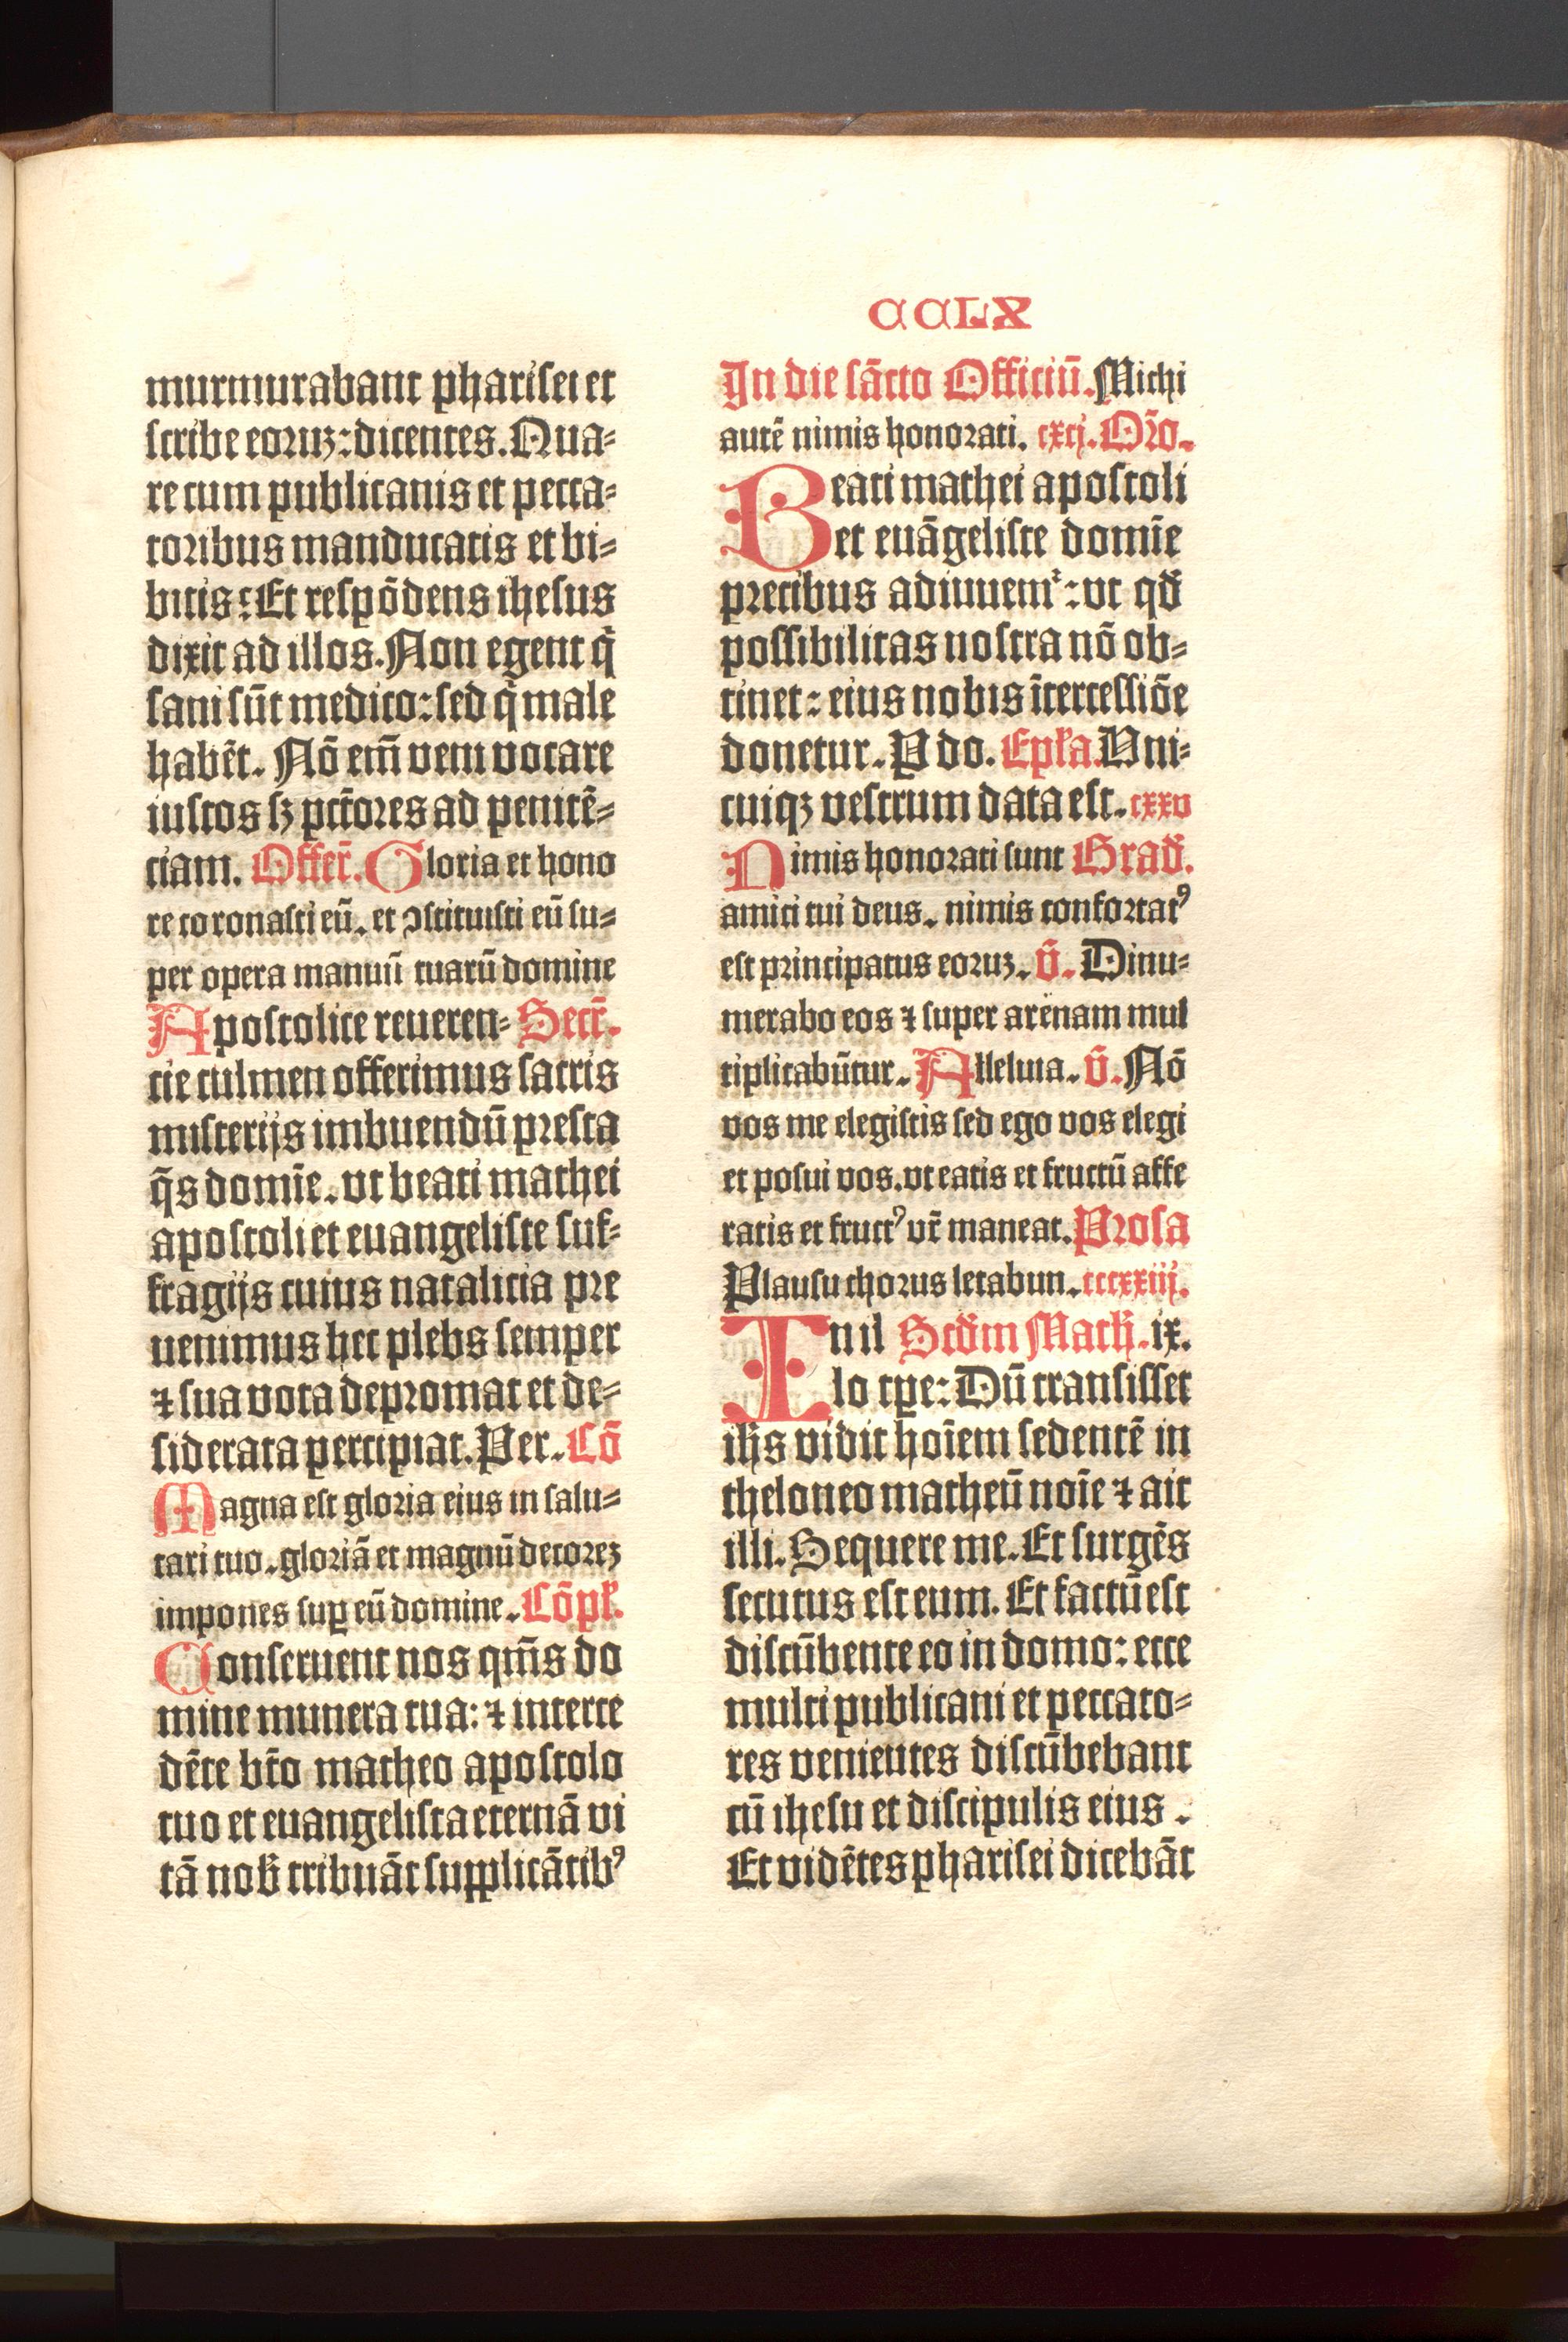 CCLX
murmurabant pharisei et
scribe eoruz: dicentes. Qua-
re cum publicanis et pecca-
toribus manducatis et bi-
bitis: Et respōdens ihesus
dixit ad illos. Non egent q̄
sani sūt medico: sed q̄ male
habēt. Nō em̄ veni vocare
iustos sꝫ pctōres ad penitē-
ciam. Offer̄. Gloria et hono
re coronasti eū. et ꝯstituisti eū su-
per opera manuū tuarū domine
Apostolice reueren- Secr̄.
cie culmen offerimus sacris
misterijs imbuendū presta
q̄s domīe. vt beati mathei
apostoli et euangeliste suf-
fragijs cuius natalicia pre
uenimus hec plebs semper
⁊ sua vota depromat et de-
siderata percipiat. Per. Cō
Magna est gloria eius in salu-
tari tuo. gloriā et magnū decorez
impones suꝑ eū domine. Cōpł.
Conseruent nos qm̄s do
mine munera tua: ⁊ interce
dēte btō matheo apostolo
tuo et euangelista eternā vi
tā nob̄ tribuāt supplicātibꝰ
In die sācto Officiū. Michi
autē nimis honorati. cxcj. Or̄o.
Beati mathei apostoli
et euāgeliste domīe
precibus adiuuemʳ: vt qd̄
possibilitas nostra nō ob-
tinet: eius nobis ītercessiōe
donetur. P do. Epła. Vni-
cuiqꝫ vestrum data est. cxxv
Nimis honorati sunt Grad̄.
amici tui deus. nimis confortatꝰ
est principatus eoruz. v̄. Dinu-
merabo eos ⁊ super arenam mul
tiplicabūtur. Alleluia. v̄. Nō
vos me elegistis sed ego vos elegi
et posui vos. vt eatis et fructū affe
ratis et fructꝰ vr̄ maneat. Prosa
Plausu chorus letabun. cccxxiij.
In il Scd̄m Math̄. ix.
lo tꝑe: Dū transisset
ih̄s vidit hoīem sedentē in
theloneo matheū noīe ⁊ ait
illi. Sequere me. Et surgēs
secutus est eum. Et factū est
discūbente eo in domo: ecce
multi publicani et peccato-
res venientes discūbebant
cū ihesu et discipulis eius.
Et vidētes pharisei dicebāt